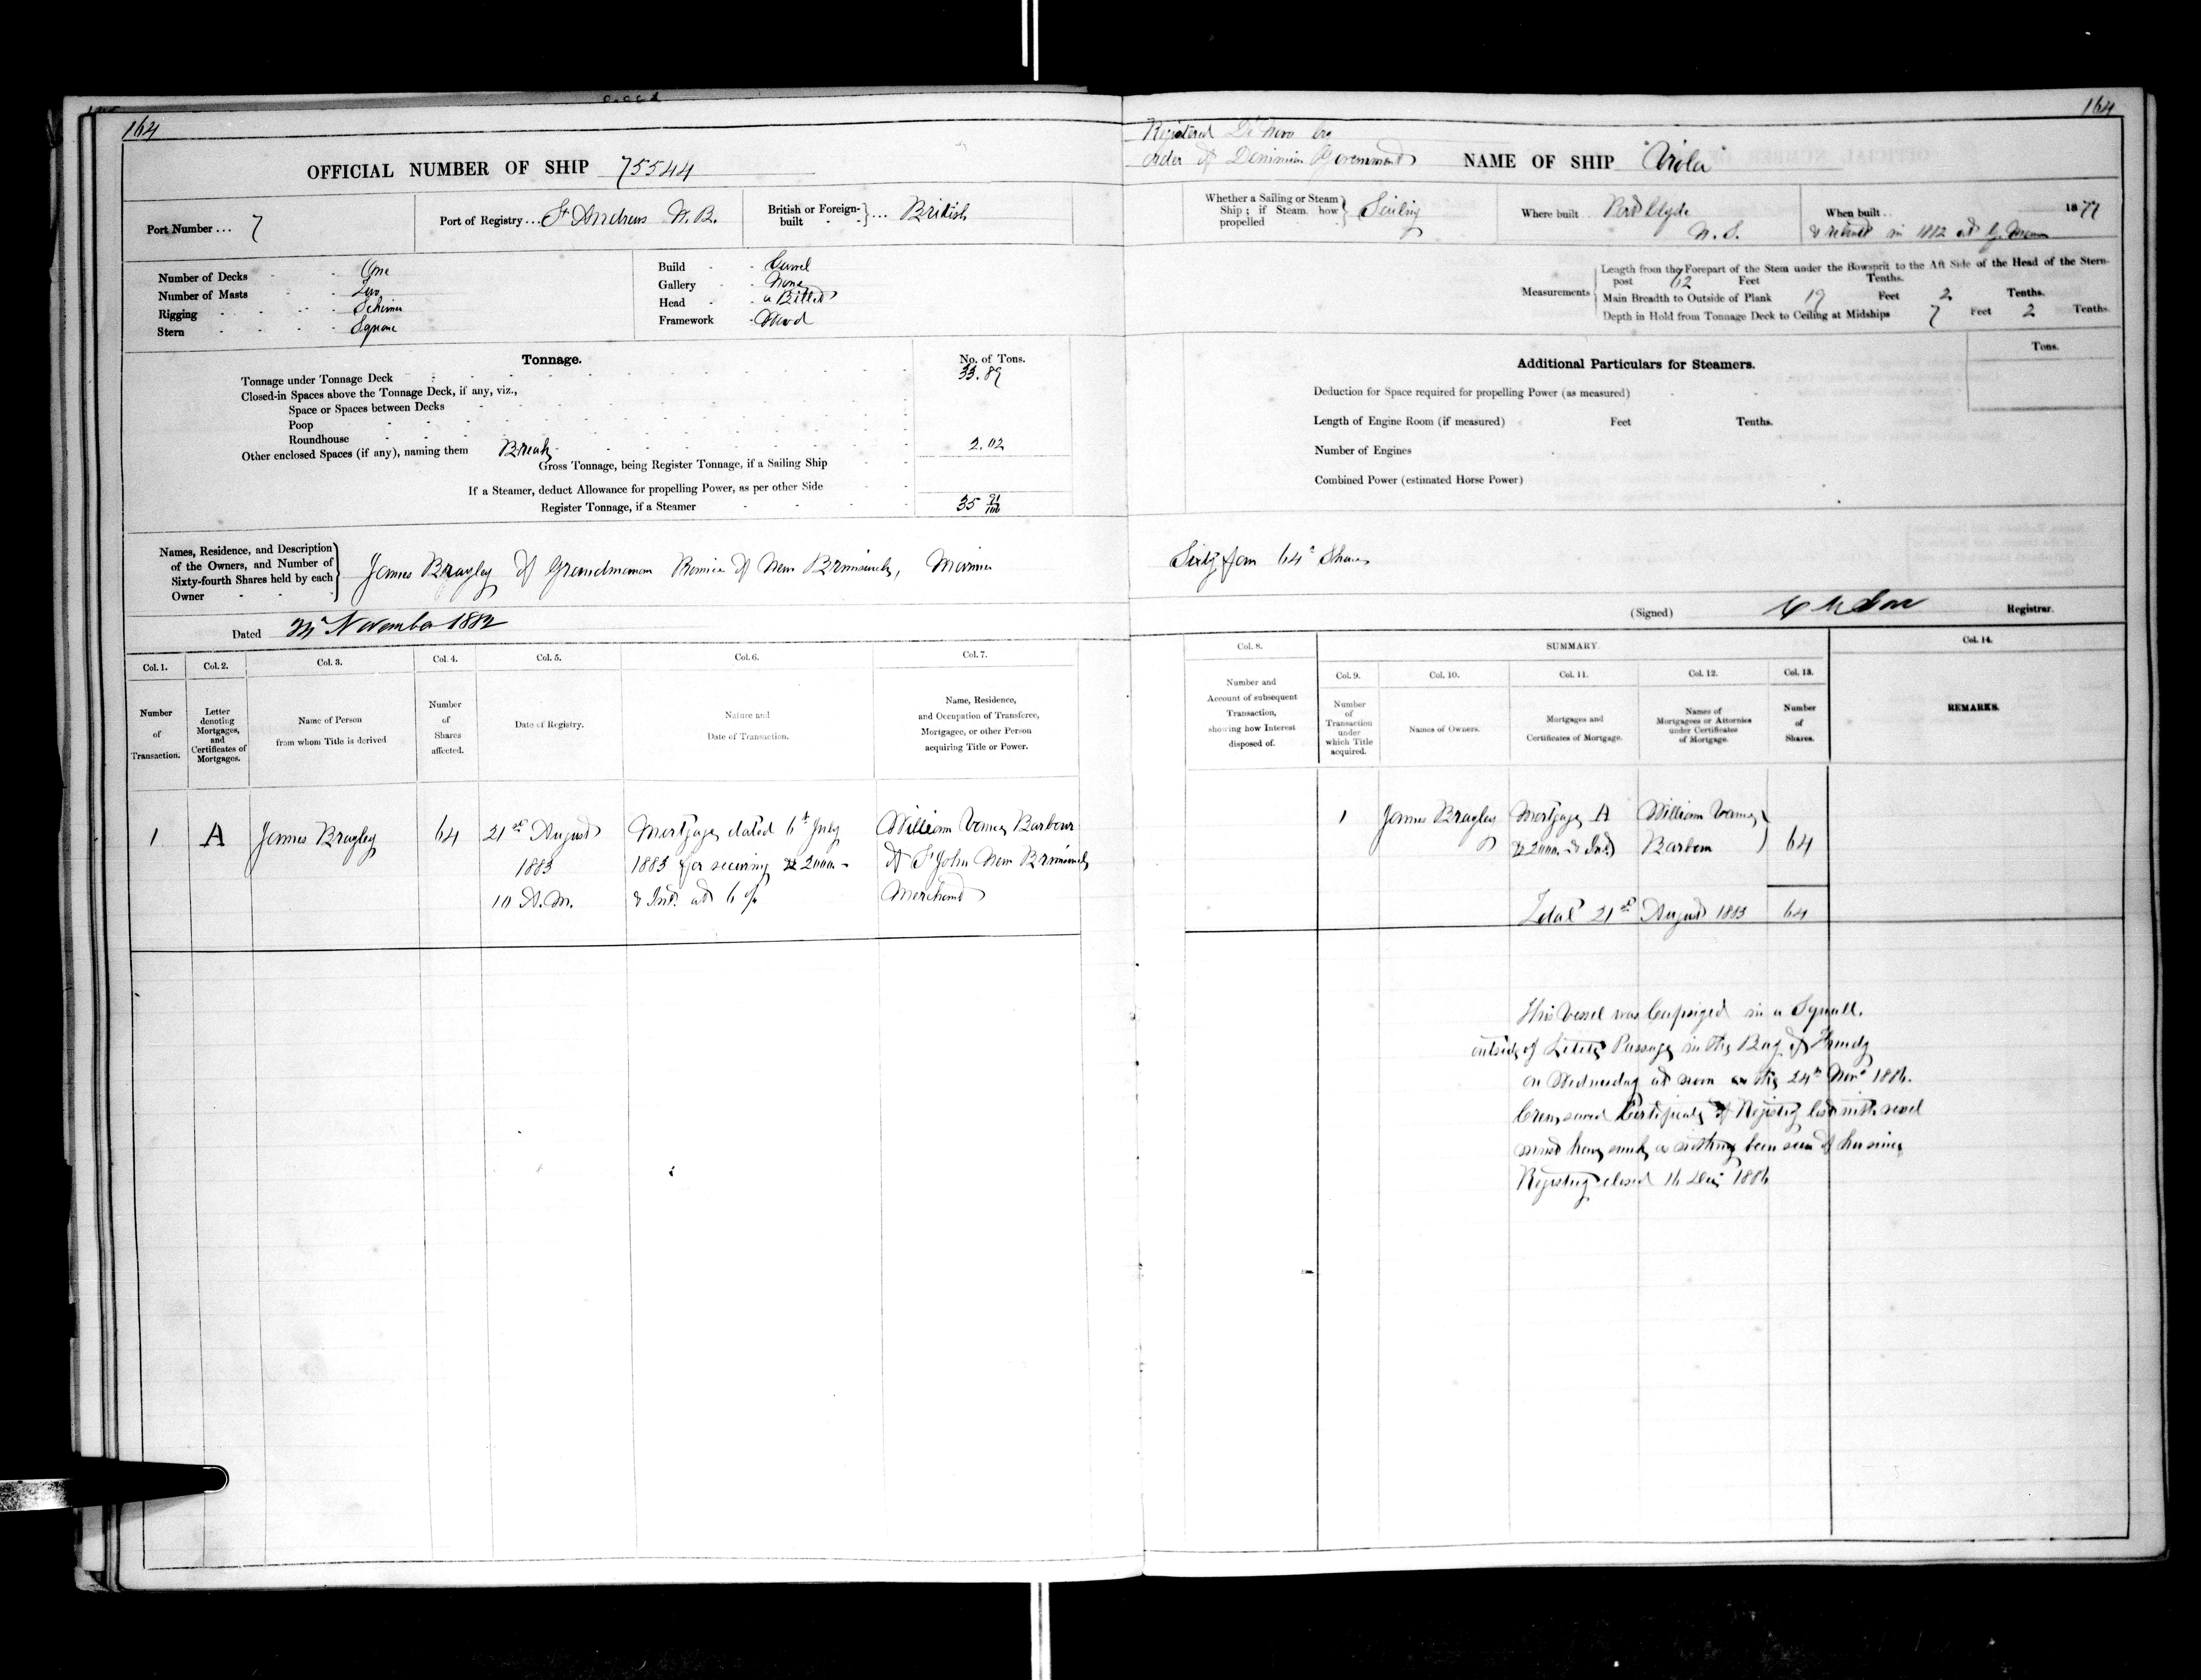 164
OFFICIAL NUMBER OF SHIP 75544
Port Number ... 7
Port of Registry ... St Andrews N.B.
British or Foreign-built ... British
Number of Decks - One
Number of Masts - Two
Rigging - Schooner
Stern - Square
Build - Carvel
Gallery - None
Head - a Billet
Framework - Wood
Tonnage.
No. of Tons.
Tonnage under Tonnage Deck 33.89
Closed-in Spaces above the Tonnage Deck, if any, viz.,
Space or Spaces between Decks
Poop
Roundhouse
Other enclosed Spaces (if any), naming them Break 2.02
Gross Tonnage, being Register Tonnage, if a Sailing Ship
If a Steamer, deduct Allowance for propelling Power, as per other Side
Register Tonnage, if a Steamer 35 91/100
Names, Residence, and Description
of the Owners, and Number of
Sixty-fourth Shares held by each
Owner
James Bragley of Grandmanan Province of New Brunswick, Mariner
Dated 24th November 1882
Col. 1. Col. 2. Col. 3. Col. 4. Col. 5. Col. 6. Col. 7.
Number of Transaction.
Letter denoting Mortgages, and Certificates of Mortgages.
Name of Person from whom Title is derived
Number of Shares affected.
Date of Registry.
Nature and Date of Transaction.
Name, Residence, and Occupation of Transferee, Mortgagee, or other Person acquiring Title or Power.
1 A James Bragley 64 21st August Mortgage dated 6th July William Barbour
1883 1883 for securing $2000 - of St John New Brunswick
10 A.M. & Int. at 6 % Merchant
164
Registered De Novo by
order of Dominion Government
NAME OF SHIP "Viola"
Whether a Sailing or Steam
Ship; if Steam, how
propelled
Sailing
Where built .. Port Clyde
N.S.
When built .. 1877
& rebuilt in 1882 at G. Manan
Measurements
Length from the Forepart of the Stem under the Bowsprit to the Aft Side of the Head of the Stern-
post 62 Feet Tenths.
Main Breadth to Outside of Plank 19 Feet 2 Tenths.
Depth in Hold from Tonnage Deck to Ceiling at Midships 7 Feet 2 Tenths.
Additional Particulars for Steamers.
Tons.
Deduction for Space required for propelling Power (as measured)
Length of Engine Room (if measured) Feet Tenths.
Number of Engines
Combined Power (estimated Horse Power)
Sixty four 64th Shares
(Signed) Registrar.
Col. 8. SUMMARY. Col. 14.
Col. 9. Col. 10. Col. 11. Col. 12. Col. 13.
Number and Account of subsequent Transaction, showing how Interest disposed of.
Number of Transaction under which Title acquired.
Names of Owners.
Mortgages and Certificates of Mortgage.
Names of Mortgagees or Attornies under Certificates of Mortgage.
Number of Shares.
REMARKS.
1 James Bragley Mortgage A William
$2000 & Int. Barbour 64
Total 21st August 1883 64
This Vessel was Capsized in a Squall,
outside of Letete Passage in the Bay of Fundy
on Wednesday at noon on the 24th Novr 1886.
Crew saved Certificate of Registry lost with vessel
must have sunk as nothing been seen of her since
Registry closed 16 Dec 1886